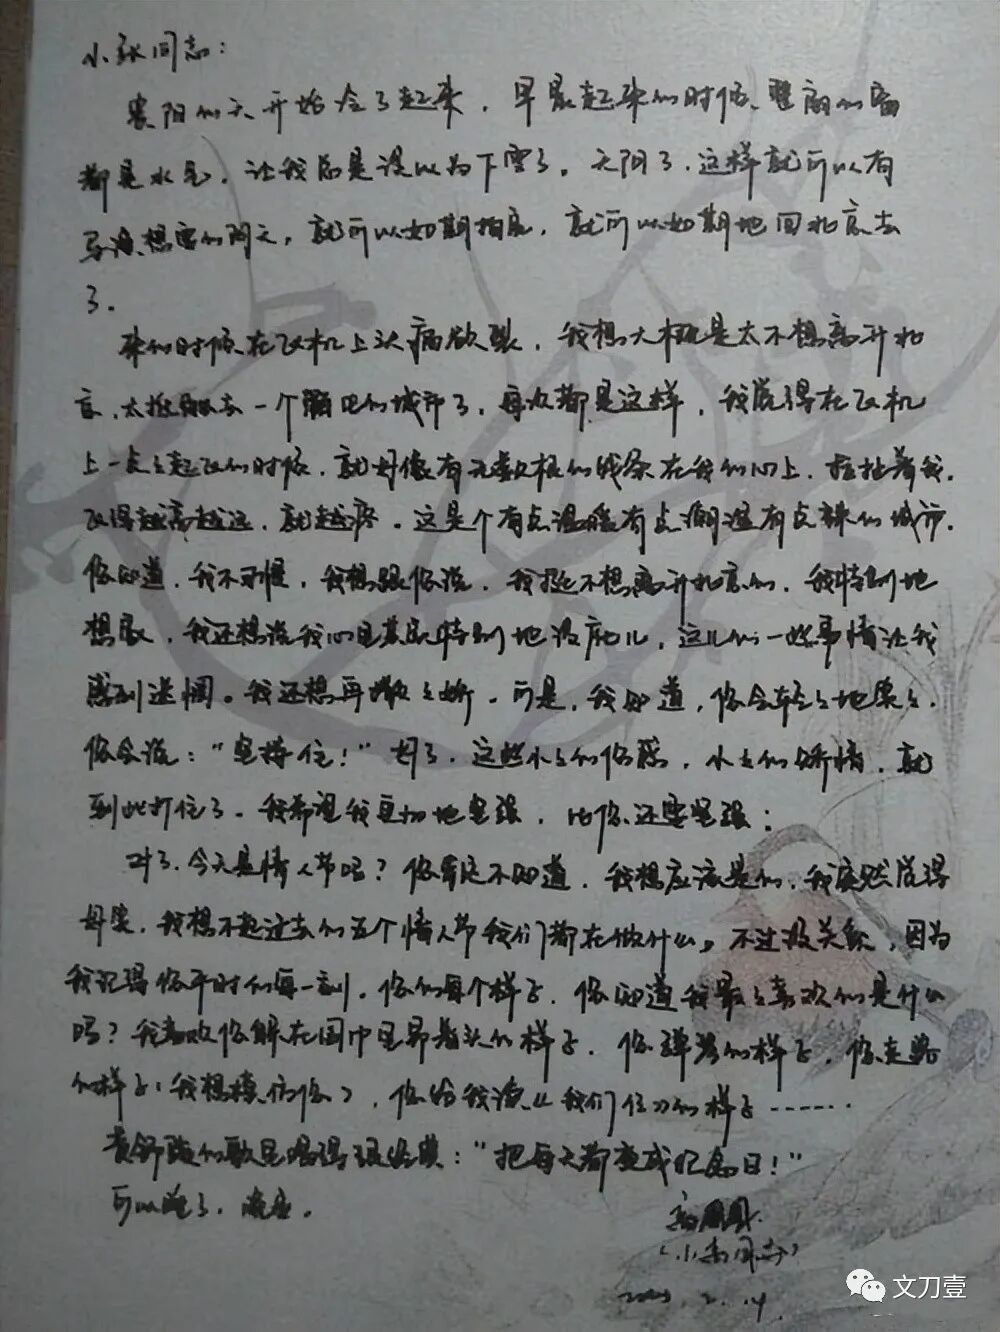 小张同志：
贵阳的天开始冷了起来，早晨起来的时候，里面的窗
都是水气，让我总是误以为下雪了。天阴了，这样就可以有
导演想要的阴天，就可以如期拍完，就可以如期地回北京去
了。
来的时候在飞机上头痛欲裂，我想大概是太不想离开北
京，太抵触去一个陌生的城市了，每次都是这样，我觉得在飞机
上一点点起飞的时候，就好像有无数根的线条在我的心上，拉扯着我，
飞得越高越远，就越疼。这是个有点温暖有点潮湿有点辣的城市，
你知道，我不习惯，我想跟你说，我挺不想离开北京的，我特别地
想家，我还想说我心里其实特别地没底儿，这儿的一些事情让我
感到迷惘。我还想再撒撒娇。可是，我知道，你会轻轻地笑笑，
你会说：“坚持住！”好了，这些小小的伤感，小小的矫情，就
到此打住了。我希望我更加地坚强，比你还要坚强；
对了，今天是情人节吗？你肯定不知道，我想应该是的，我突然觉得
好笑，我想不起过去的五个情人节我们都在做什么，不过没关系，因为
我记得你平时的每一刻，你的每个样子，你知道我最最喜欢的是什么
吗？我喜欢你躲在围巾里昂着头的样子，你弹琴的样子，你走路
的样子（我想模仿你），你给我读《我们仨》的样子……
黄舒骏的歌里唱得很经典：“把每天都变成纪念日！”
可以睡了，晚安。
高圆圆
（小高同志）
2.14
文刀壹